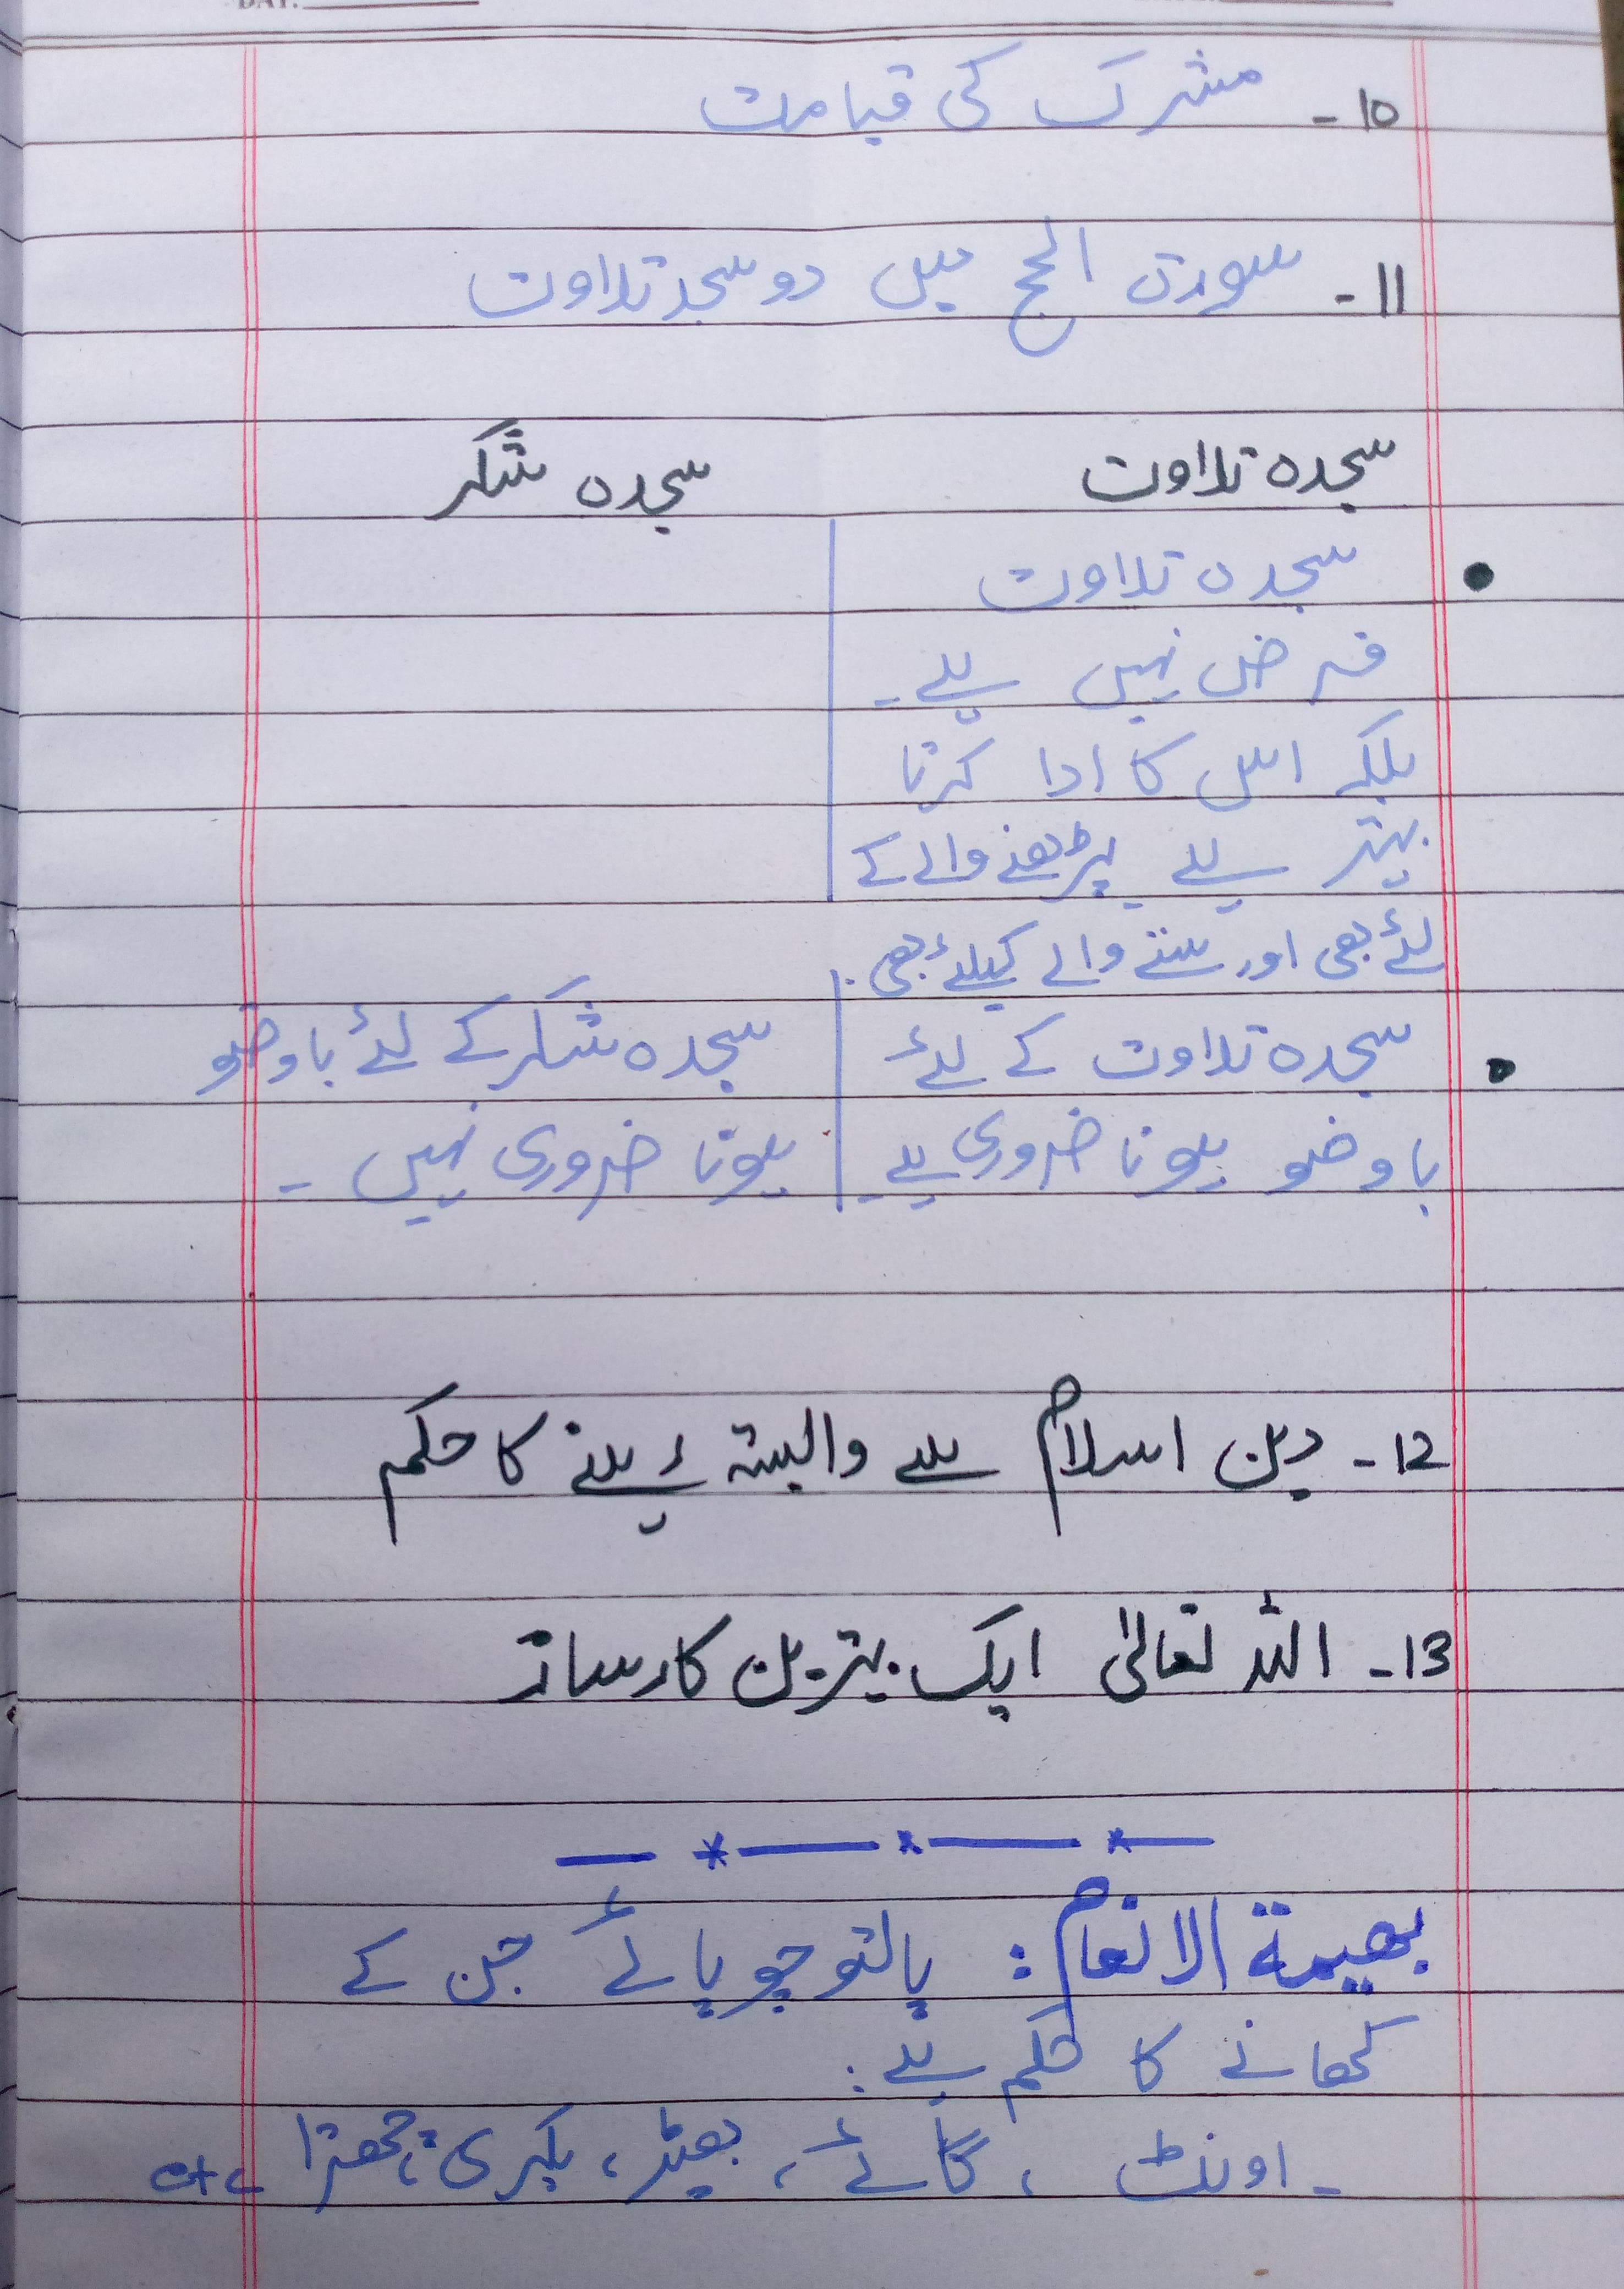 10- مشرک کی قیامت
11- سورت الحج میں دو سجد تلاوت
سجدہ تلاوت
سجدہ شکر
• سجدہ تلاوت
فرض نہیں ہے۔
بلکہ اس کا ادا کرنا
بہتر ہے پڑھنے والے کے
لئے بھی اور سننے والے کیلئے بھی۔
• سجدہ تلاوت کے لئے
باوضو ہونا ضروری ہے۔
سجدہ شکر کے لئے باوضو
ہونا ضروری نہیں۔
12- دین اسلام سے وابستہ رہنے کا حکم
13- اللہ تعالیٰ ایک بہترین کارساز
بھیمة الانعام: پالتو چوپائے جن کے
کھانے کا حکم ہے:
- اونٹ، گائے، بھیڑ، بکری، etc